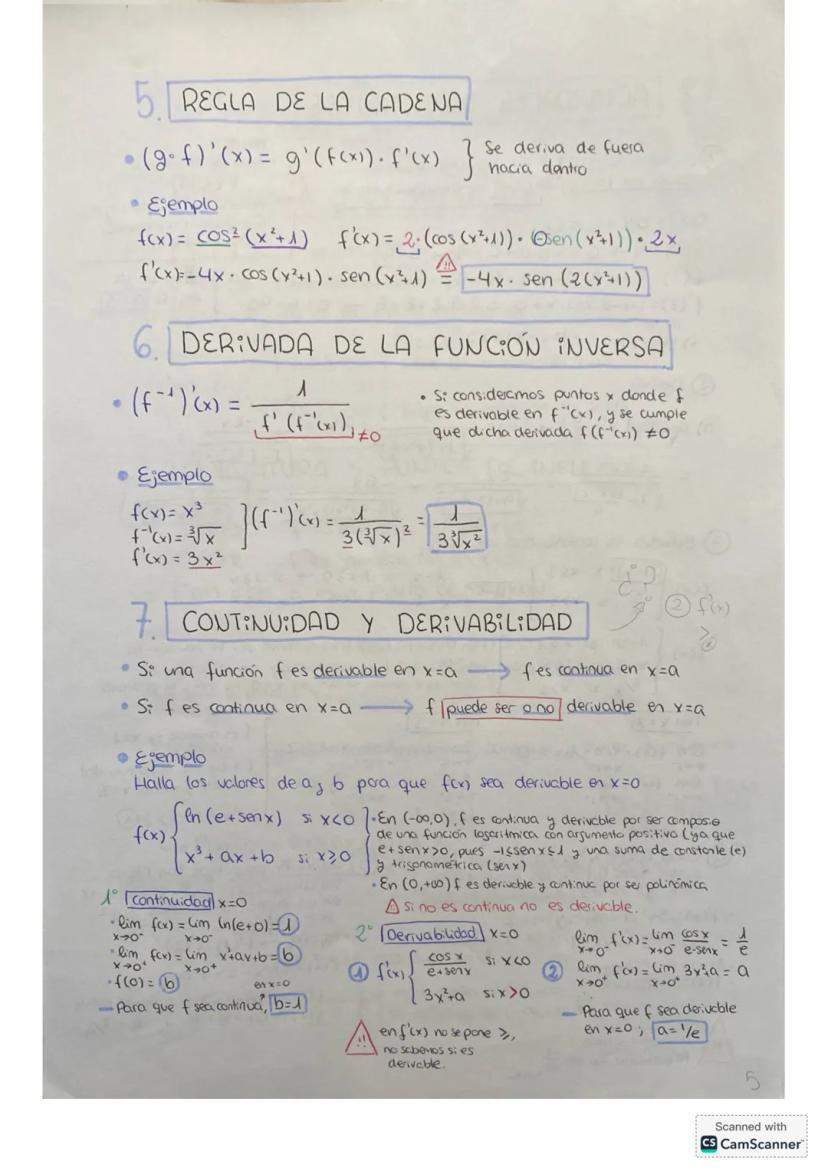 5. REGLA DE LA CADENA
• (g∘f)'(x) = g'(f(x)) · f'(x) } Se deriva de fuera
hacia dentro
• Ejemplo
f(x) = cos² (x²+1) f'(x) = 2·(cos (x²+1)) · (-sen (x²+1)) · 2x
f'(x)=-4x · cos(x²+1) · sen(x²+1) = -4x · sen (2(x²+1))
6. DERIVADA DE LA FUNCIÓN INVERSA
• (f⁻¹)'(x) = 1 / f'(f⁻¹(x)) ≠0
• Si consideramos puntos x donde f
es derivable en f⁻¹(x), y se cumple
que dicha derivada f(f⁻¹(x)) ≠0
• Ejemplo
f(x) = x³
f⁻¹(x) = ∛x ] (f⁻¹)'(x) = 1 / 3(∛x)² = 1 / 3∛x²
f'(x) = 3x²
¿?
② f'(x)
≥
7. CONTINUIDAD Y DERIVABILIDAD
• Si una función f es derivable en x=a → f es continua en x=a
• Si f es continua en x=a → f puede ser o no derivable en x=a
• Ejemplo
Halla los valores de a y b para que f(x) sea derivable en x=0
f(x) { ln (e+senx) si x<0
x³ + ax + b si x≥0
• En (-∞,0), f es continua y derivable por ser
de una función logarítmica con argumento positivo (ya que
e+senx>0, pues -1≤senx≤1 y una suma de constante (e)
y trigonométrica (senx)
• En (0,+∞) f es derivable y continua por ser polinómica
⚠ Si no es continua no es derivable.
1° Continuidad x=0
• lim x→0⁻ f(x) = lim x→0⁻ ln(e+0) = 1
• lim x→0⁺ f(x) = lim x→0⁺ x³+ax+b = b
• f(0) = b
en x=0
– Para que f sea continua, b=1
2° Derivabilidad x=0
① f'(x) { cosx / e+senx si x<0
3x²+a si x>0
⚠ en f'(x) no se pone ≥,
no sabemos si es
derivable.
lim x→0⁻ f'(x) = lim x→0⁻ cosx / e·senx = 1/e
② lim x→0⁺ f'(x) = lim x→0⁺ 3x²+a = a
– Para que f sea derivable
en x=0; a=1/e
5
Scanned with
CS CamScanner